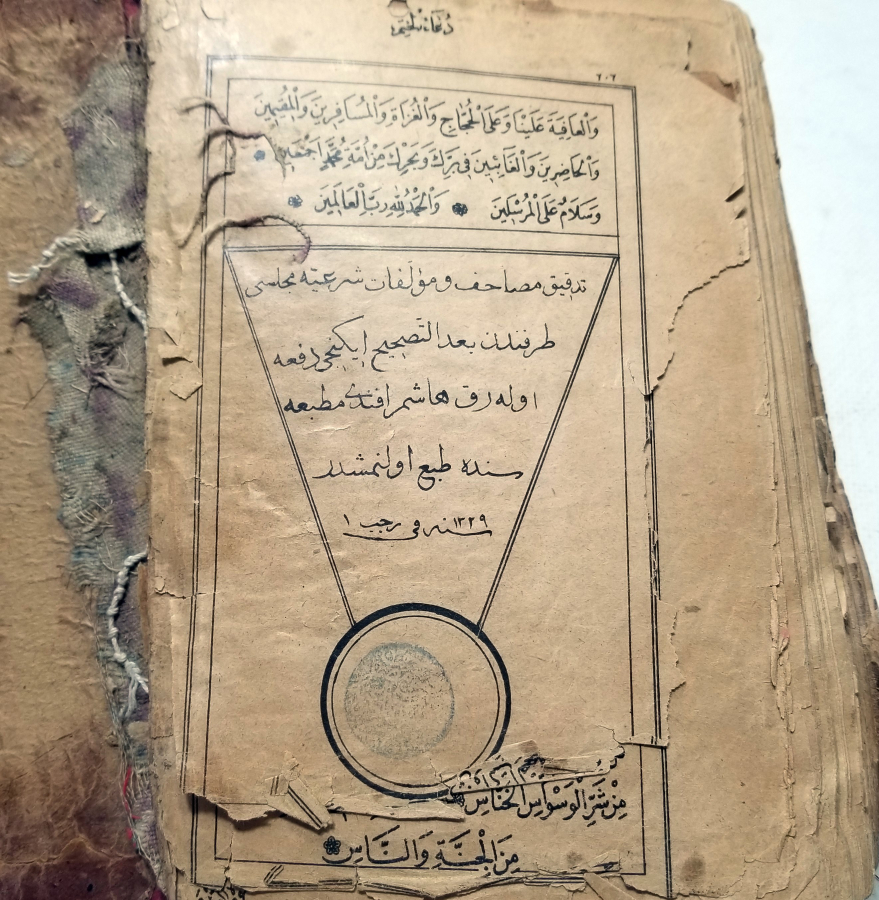 دُعَاءُ الْخَتْمِ
٦٠٦
وَالْعَافِيَةَ عَلَيْنَا وَعَلَى الْحُجَّاجِ وَالْغُزَاةِ وَالْمُسَافِرِينَ وَالْمُقِيمِينَ
وَالْحَاضِرِينَ وَالْغَائِبِينَ فِى بَرِّكَ وَبَحْرِكَ مِنْ اُمَّةِ مُحَمَّدٍ اَجْمَعِينَ
وَسَلَامٌ عَلَى الْمُرْسَلِينَ وَالْحَمْدُ لِلّٰهِ رَبِّ الْعَالَمِينَ
تدقيق مصاحف ومؤلفات شرعيه مجلسى
طرفندن بعد التصحيح ايكنجى دفعه
اوله رق هاشم افندى مطبعه
سنده طبع اولنمشدر
سنه ١٣٢٩ فى رجب ١
مِنْ شَرِّ الْوَسْوَاسِ الْخَنَّاسِ
مِنَ الْجِنَّةِ وَالنَّاسِ